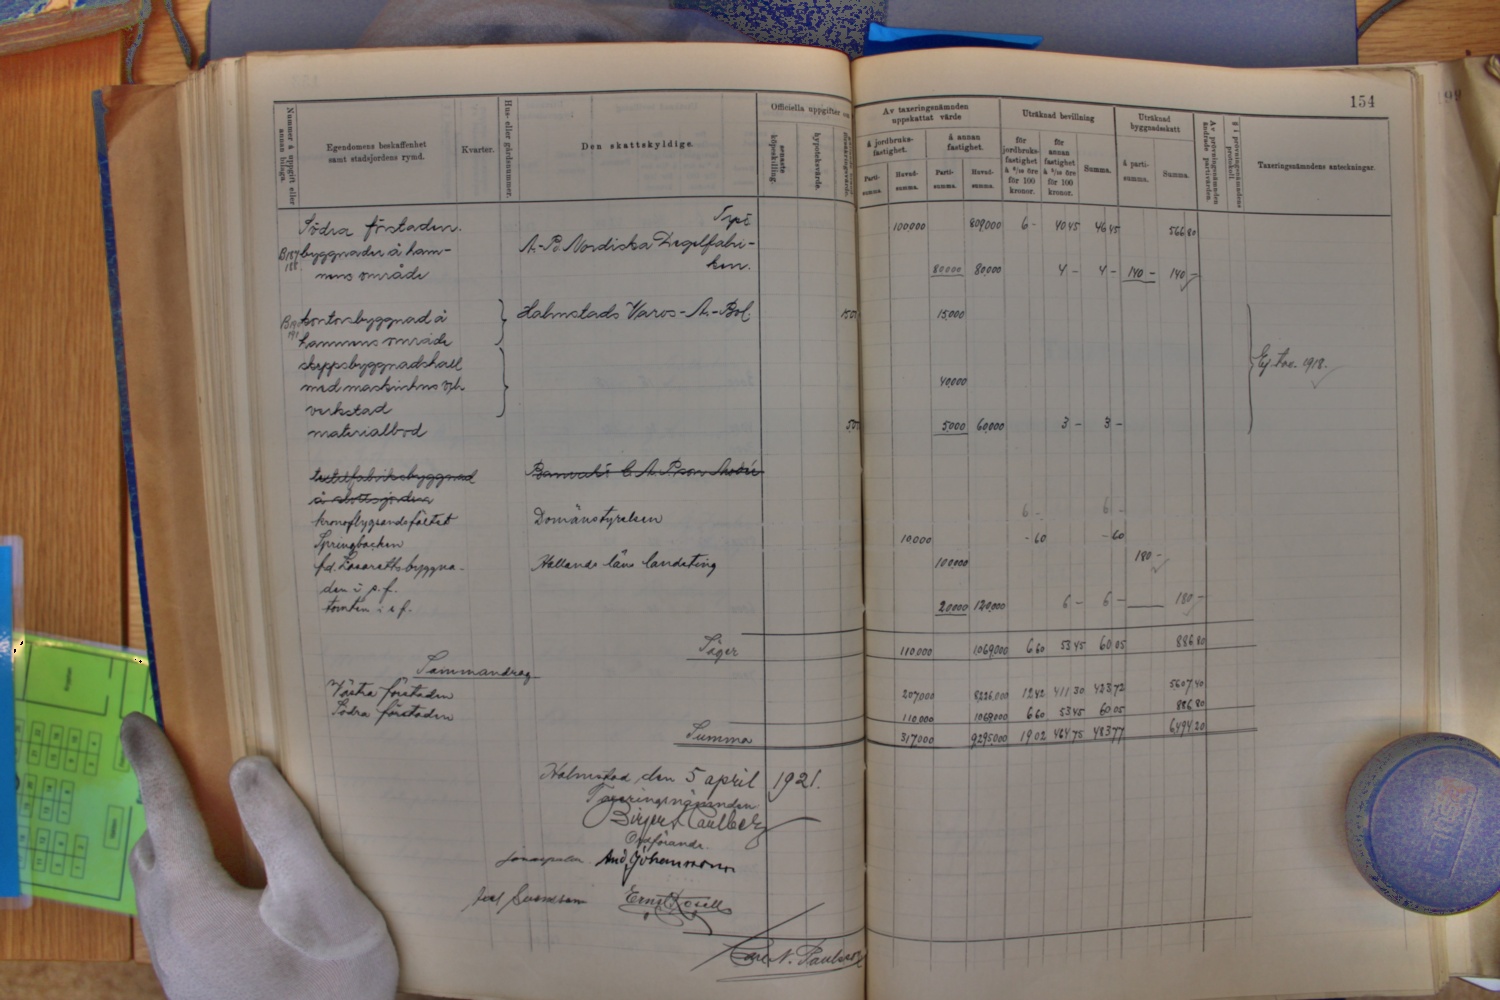 154
Nummer å uppgift eller annan bilaga.
Egendomens beskaffenhet samt stadsjordens rymd.
Kvarter.
Hus- eller gårdsnummer.
Den skattskyldige.
Officiella uppgifter
senaste köpeskilling.
hypoteksvärde.
Av taxeringsnämnden uppskattat värde
å jordbruksfastighet.
Partisumma.
Huvudsumma.
å annan fastighet.
Partisumma.
Huvudsumma.
Uträknad bevillning
för jordbruksfastighet à 6/10 öre för 100 kronor.
för annan fastighet à 5/10 öre för 100 kronor.
Summa.
Uträknad byggnadsskatt
å partisumma.
Summa.
Av prövningsnämnden ändrade partivärden.
§ i prövningsnämndens protokoll.
Taxeringsnämndens anteckningar.
Södra förstaden. Tspt 100000 809000 6 - 4045 4645 56680
byggnader å ham- A.-B. Nordiska Degelfabri-
nens område ken. 80000 80000 4 - 4 - 140 - 140 -
kontorsbyggnad å Halmstads Varvs-A.-Bol. 15000
hamnens område
skeppsbyggnadshall Ej tax. 1918.
med maskinhus och 40000
verkstad
materialbod 5000 60000 3 - 3 -
textilfabriksbyggnad
å slottsjorden
kronoflygsandsfältet Domänstyrelsen 6 - 6 -
Springbacken 10000 - 60 - 60
f.d. Lasarettsbyggna- Hallands läns landsting 100000 180 -
den i s.f.
tomten i s.f. 20000 120000 6 - 6 - 180 -
Säger 110000 1069000 660 5345 6005 88680
Sammandrag
Västra förstaden 207000 8226000 1242 41130 42372 560740
Södra förstaden 110000 1069000 660 5345 6005 88680
Summa 317000 9295000 1902 46475 48377 649420
Halmstad den 5 april 1921.
Taxeringsnämnden
Birger Carlberg
Ordförande.
And. Johansson
Axel Svensson Ernst Rosell